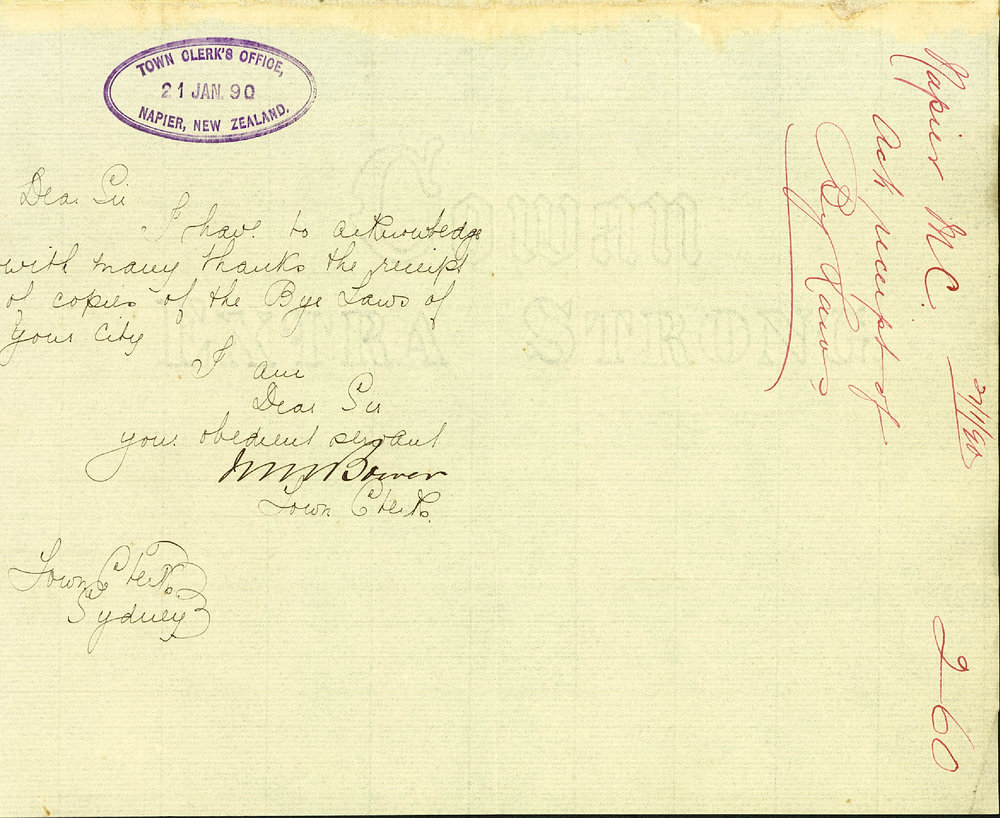 TOWN CLERK'S OFFICE,
21 JAN. 90
NAPIER, NEW ZEALAND.
Dear Sir
I have to acknowledge
with many thanks the receipt
of copies of the Bye Laws of
your city
I am
Dear Sir
your obedient servant
Bower
Town Clerk.
Town Clerk
Sydney
Napier M.C.
Ack receipt of
By Laws
27/1/90
2-60
Cowan
EXTRA STRONG